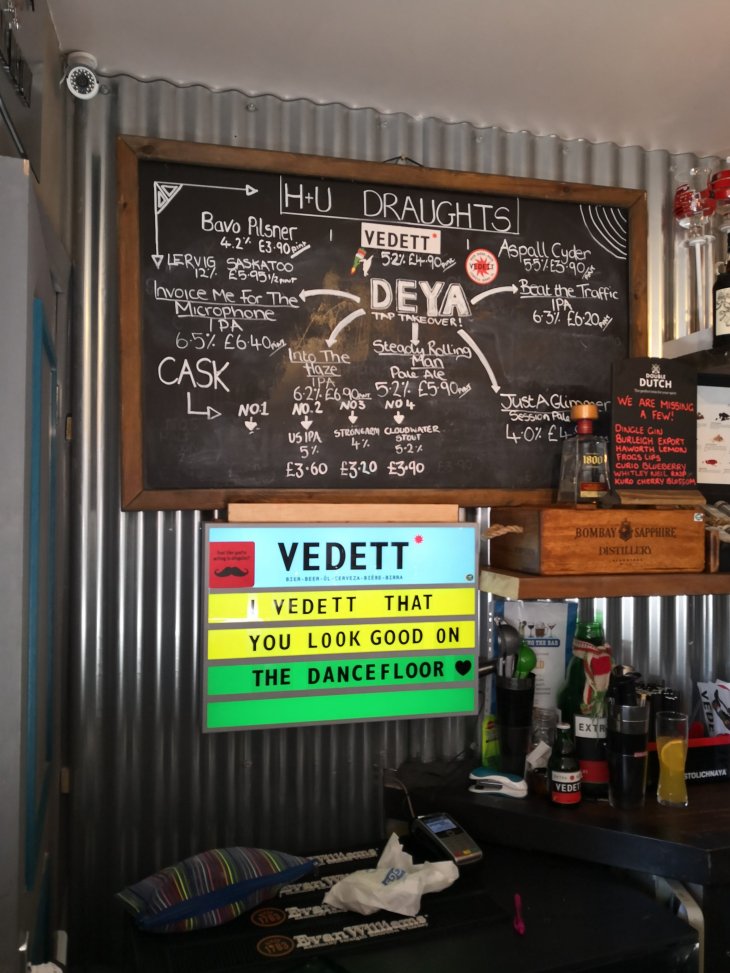 H+U DRAUGHTS
Bavo Pilsner
4.2% £3.90 pint
LERVIG SASKATOO
12% £5.95 1/2 pint
VEDETT
5.2% £4.90 pint
VEDETT
Aspall Cyder
5.5% £3.90 pint
DEYA
TAP TAKEOVER!
Invoice Me For The
Microphone
IPA
6.5% £6.40 pint
Beat the Traffic
IPA
6.3% £6.20 pint
Into The
Haze
IPA
6.2% £6.90 pint
Steady Rolling
Man
Pale Ale
5.2% £5.90 pint
Just A Glimmer
Session Pale
4.0%
CASK
NO.1
NO.2
US IPA
5%
£3.60
NO3
STRONGARM
4%
£3.20
NO 4
CLOUDWATER
STOUT
5.2%
£3.90
DOUBLE
DUTCH
WE ARE MISSING
A FEW!
DINGLE GIN
BURLEIGH EXPORT
HAWORTH LEMON
FROGS LIPS
CURIO BLUEBERRY
WHITLEY NEIL RASP
KURO CHERRY BLOSSOM
1800
BOMBAY SAPPHIRE
DISTILLERY
VEDETT
BIER-BEER-ÖL-CERVEZA-BIÈRE-BIRRA
I VEDETT THAT
YOU LOOK GOOD ON
THE DANCEFLOOR
EXTRA
VEDETT
STOLICHNAYA
Evan Williams
1783
Evan Williams